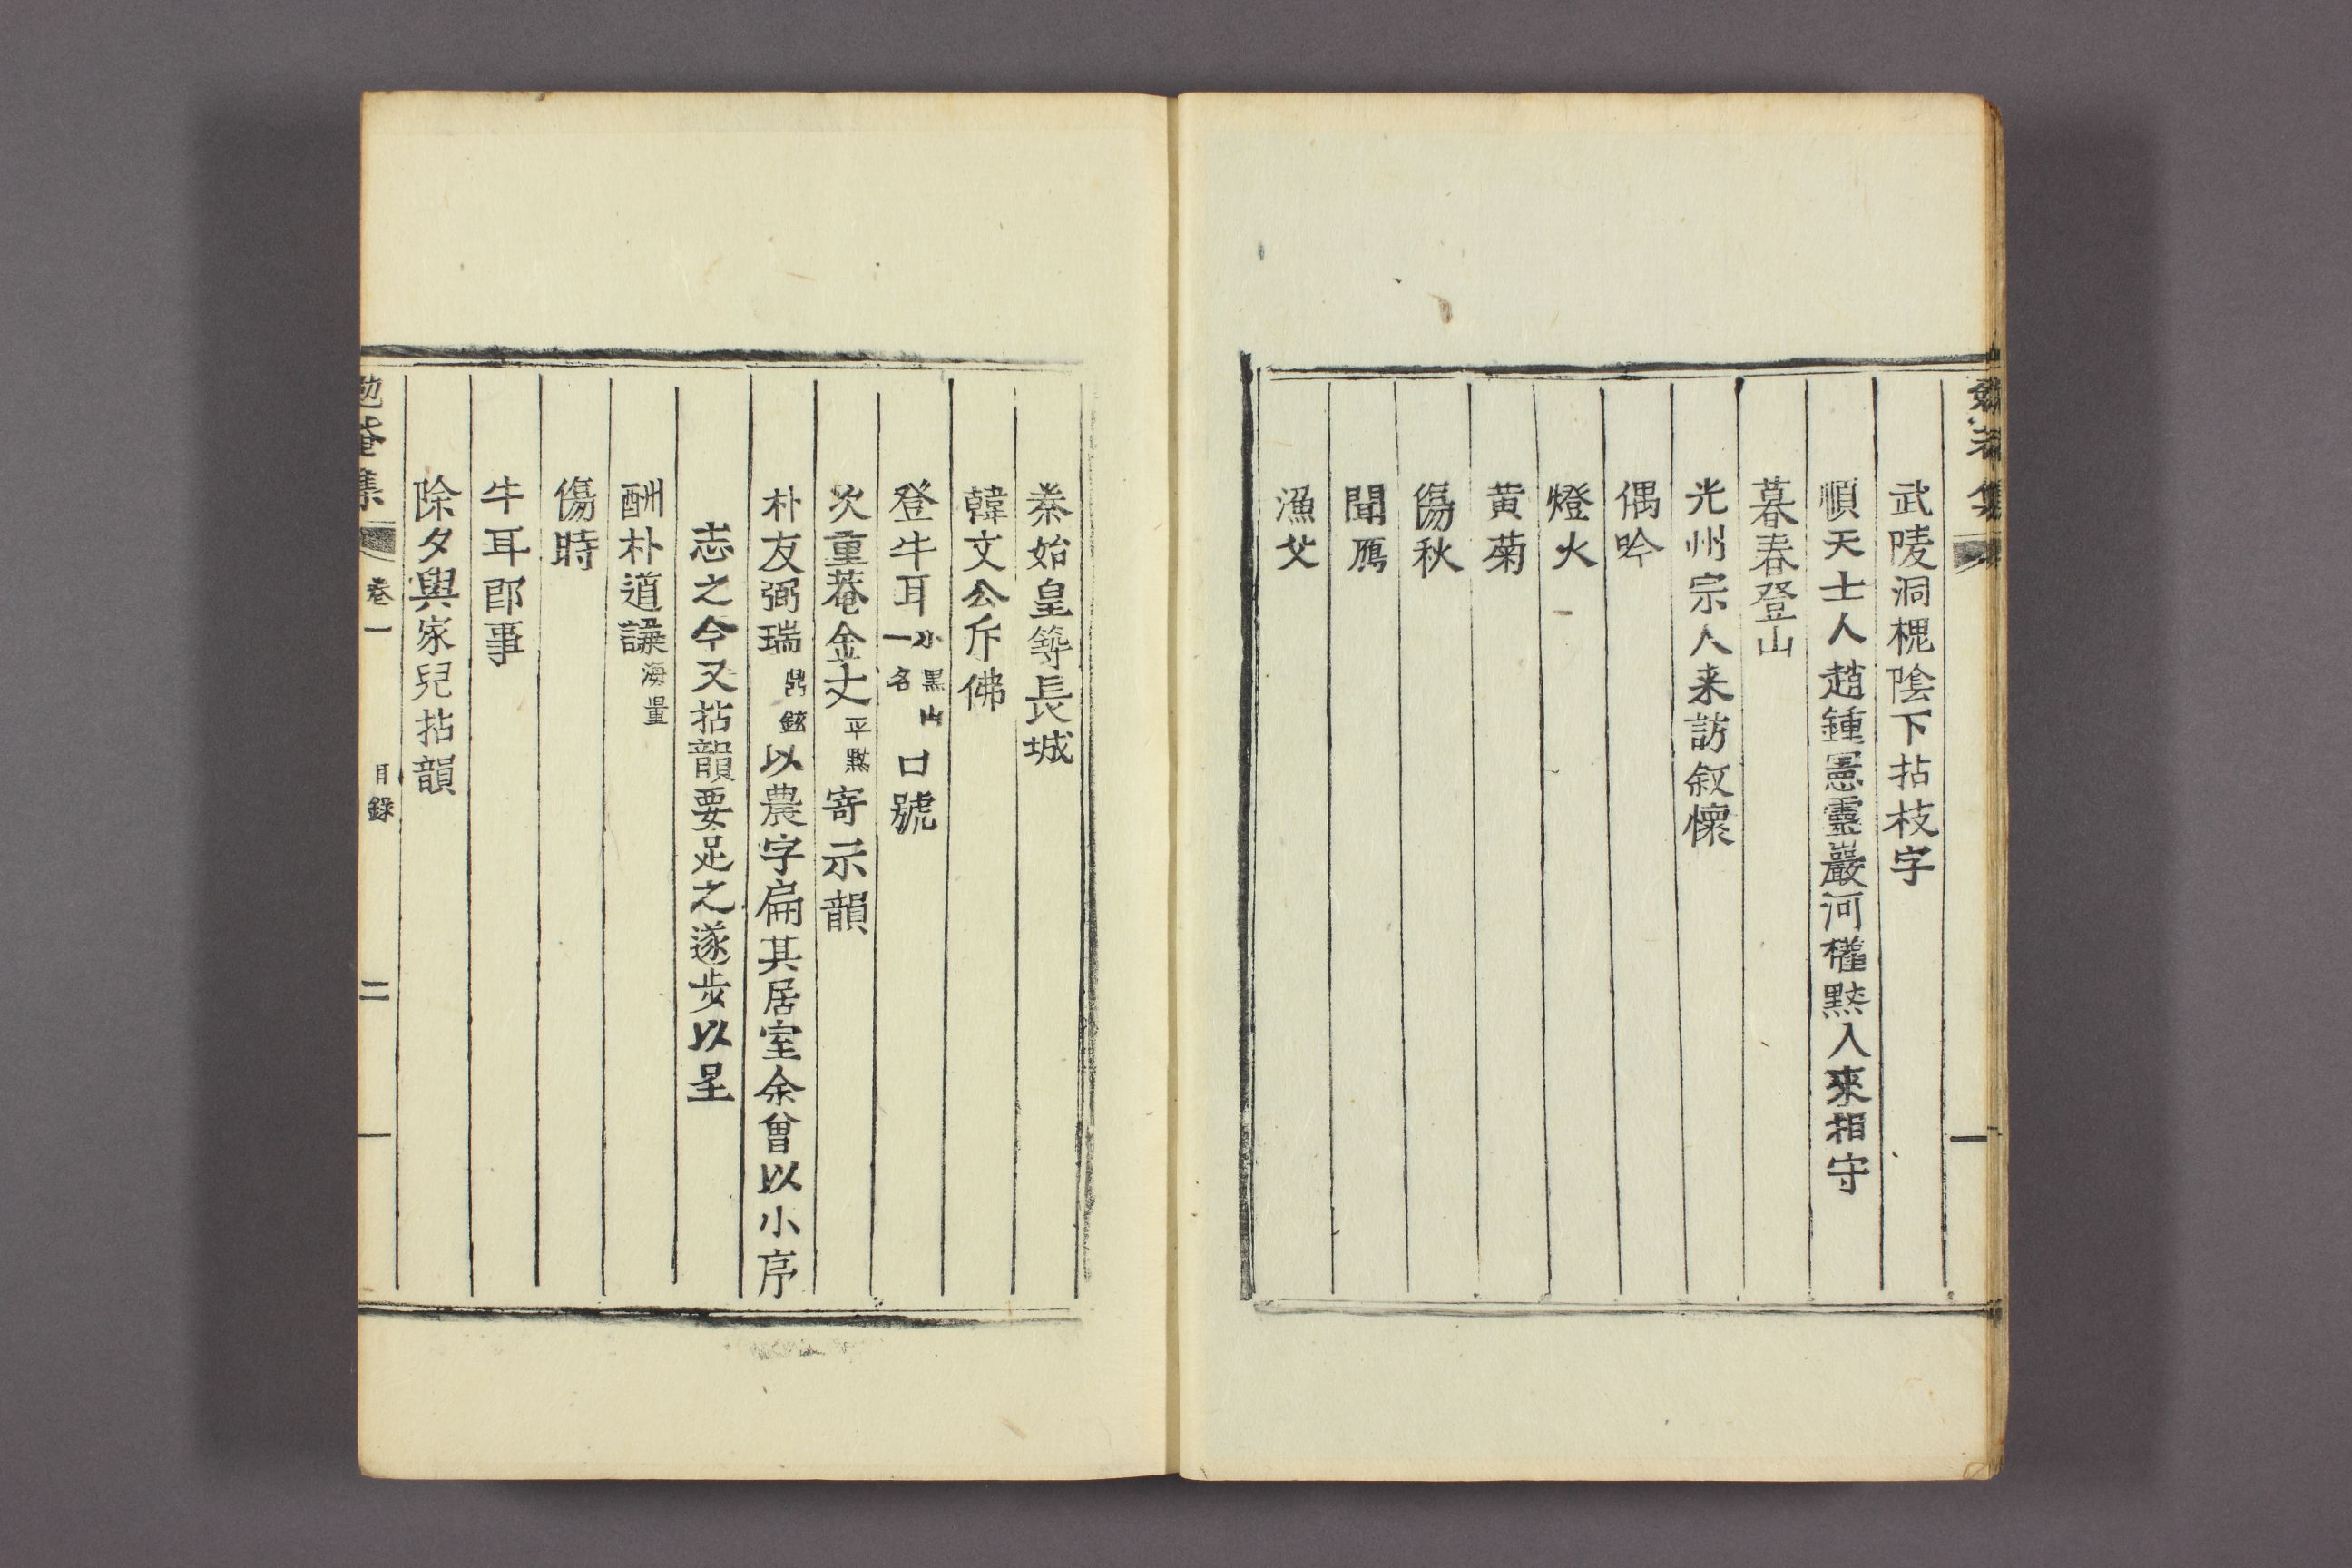 武陵洞槐陰下拈枝字
順天士人趙鍾憲靈巖河權㸃入來相守
暮春登山
光州宗人来訪叙懷
偶吟
燈火
黄菊
傷秋
聞鴈
漁父
秦始皇築長城
韓文公斥佛
登牛耳一名小黑山口號
次重菴金丈平黙寄示韻
朴友弼瑞鼎鉉以農字扁其居室余曾以小序
志之今又拈韻要足之遂步以呈
酬朴道謙海量
傷時
牛耳卽事
除夕與家兒拈韻
勉菴集 卷一 目錄 二